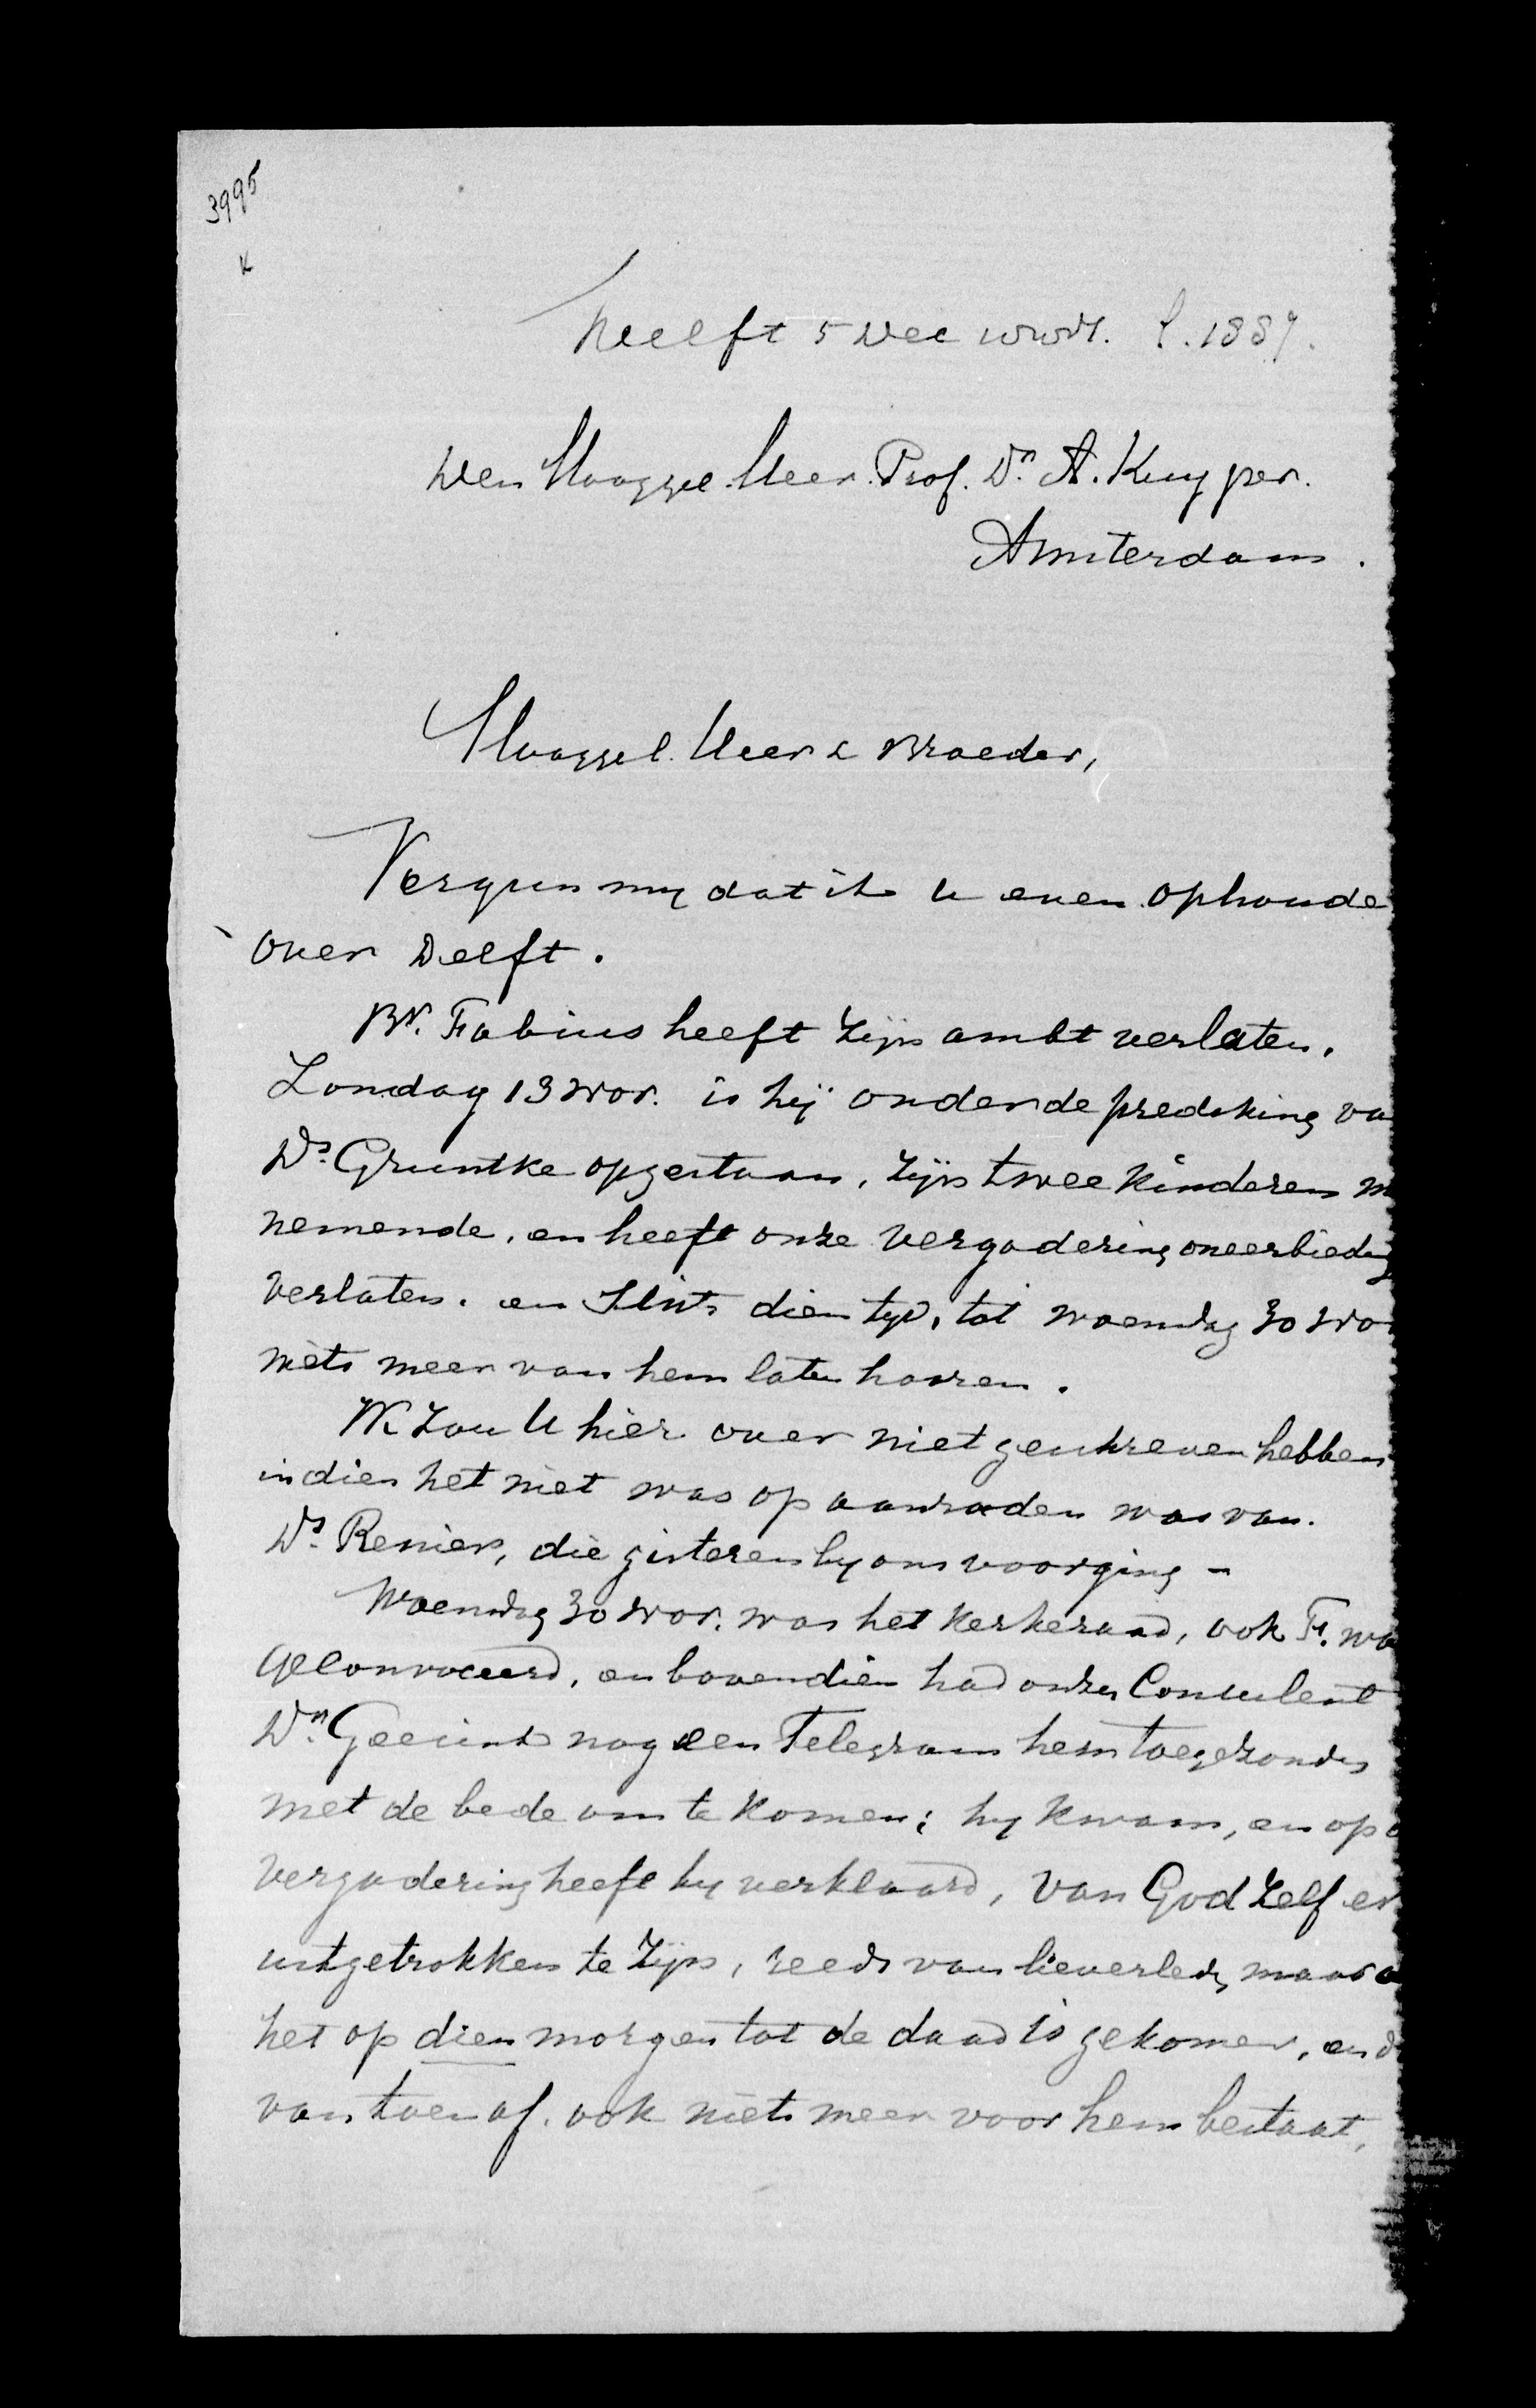 3995
K
Delft 5 Dec 1887.
Den HoogGel. Heer. Prof. Dr. A. Kuyper.
Amsterdam.
HoogGel. Heer & Broeder,
Vergun my dat ik U even ophoude
over Delft.
Br. Fabius heeft zijn ambt verlaten.
Zondag 13 Nov. is hij onder de predeking va
Ds. Gruntke opgestaan, zijn twee kinderen m
nemende, en heeft onze vergadering oneerbiedig
verlaten. en Sints dien tyd, tot woensdag 30 Nov
niets meer van hem laten hooren.
Ik zou U hier over niet geschreven hebben
indien het niet was op aanraden was van.
Ds. Renier, die gisteren by ons voorging –
Woensdag 30 Nov. was het Kerkeraad, ook F. wa
geconvoceerd, en bovendien had onzen Consulent
Dr. Geesink nog een Telegram hem toegezonden
met de bede om te komen; hy kwam, en op d
vergadering heeft hy verklaard, van God zelf er
uitgetrokken te zijn, reeds van lieverlede, maar
het op dien morgen tot de daad is gekomen, en d
van toen af. ook niets meer voor hem bestaat,